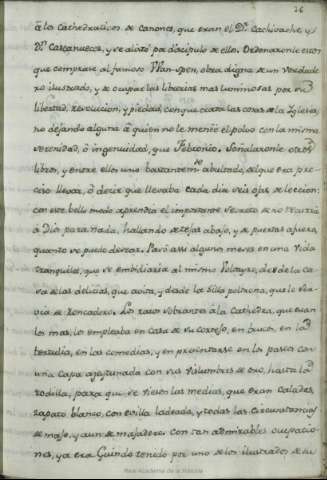 26
â los Cathedraticos de Canones, que eran el Dr. Cachivache, y
Dr. Cascanueces, y se alistó por discipulo de ellos. Ordenaronle estos
que comprase al famoso Wan-spen, obra digna de un verdade
ro ilustrado, y se ocupase las librerias mas luminosas por su
libertad, revolucion, y piedad, con que trata las cosas de la Iglesia,
no dejando alguna â quien no le menée el polvo con la misma
serenidad, ô ingenuidad, que Febronio. Señalaronle otros
libros, y entre ellos uno bastantemte. abultado, del que era pre
ciso llevar, ô decir que llevaba cada dia seis ojas de leccion:
con este bello modo aprendia el importante secreto de no
â Dio para nada, hallando de tejas abajo, y de puertas afuera
quanto se puede desear. Pasó assi algunos meses en una vida
tranquila, que se embidiaria al mismo desde la Ca
va de las delicias, que avita, y desde la silla poltrona, que le ser
via de Roncadero. Los ratos sobrantes â la Cathedra, que eran
los mas, los empleaba en casa de su Cortejo, en bucos, en la
tertulia, en las comedias, y en presentarse en los paseos con
una capa agitanada con sus vislumbres de oso, hasta la
rodilla, para que se viesen las medias, que eran caladas,
zapato blanco, con evilla ladeada, y todas las circunstancias
de majo, y aun de majadero. Con tan admirables ocupacio-
nes, ya era Guindo tenido por uno de los ilustrados de su
Real Academia de la Historia